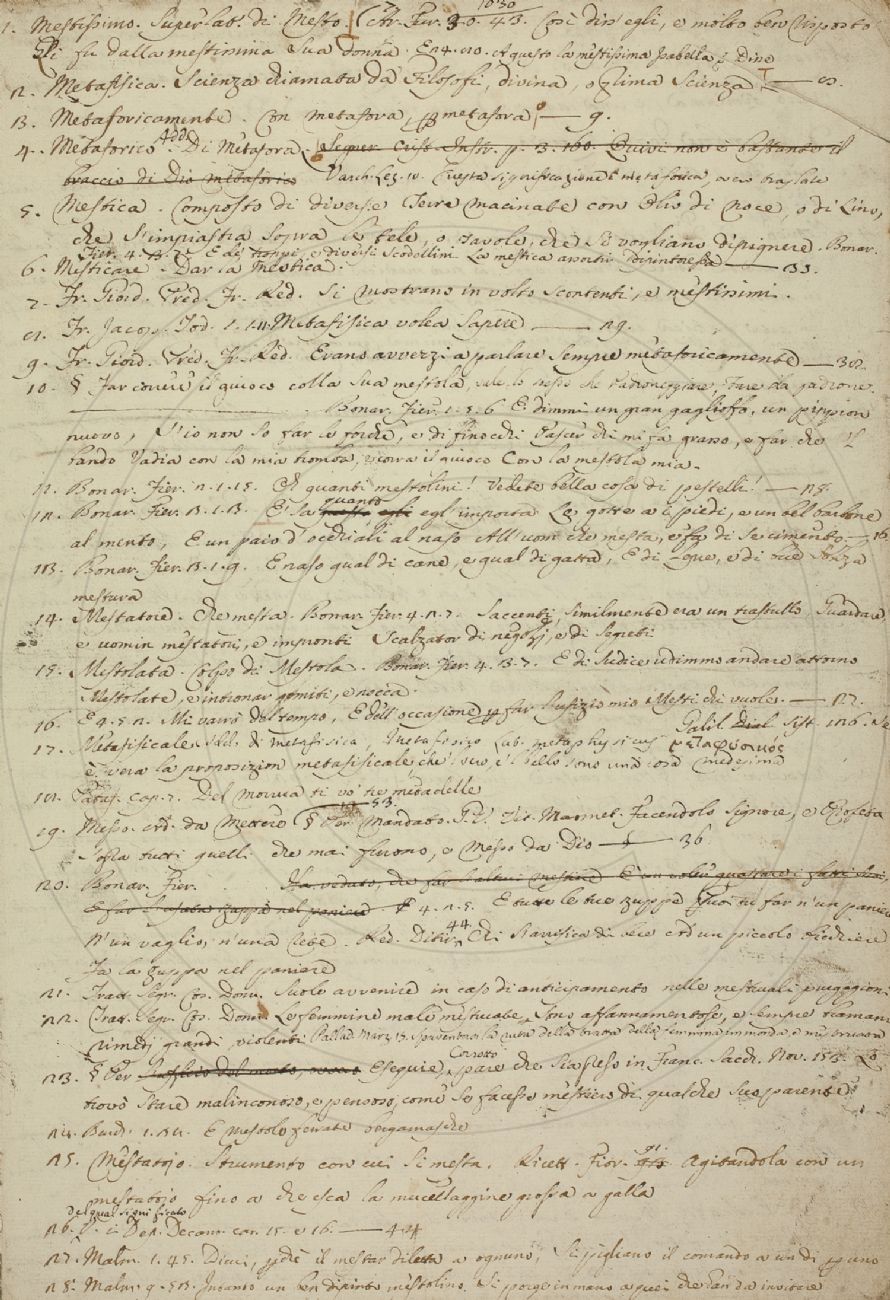 1. Mestissimo. Superlat. di Mesto. Così diss'egli, e molto ben risposto
Gli fu dalla mestissima sua donna. E n. 4. A questo la mestissima Isabella, Dine
2. Metafisica. Scienza chiamata da Filosofi, divina, o prima Scienza
3. Metaforicamente. Con metafora, per metafora — 9.
4. Metaforico Add. Di Metafora. Segner. Crist. Instr. p. 3. 160. Quivi non è bastante il
braccio di Dio metaforico Varch. Lez. 10. Questa significazione è metaforica, o ver traslata
5. Mestica. Composto di diverse Terre macinate con Olio di noce, o di Lino,
che s'impiastra sopra le tele, o tavole, che si vogliano dipignere. Bonar.
Fier. 4. e diversi Scodellini La mestica
6. Mesticare. Dar la mestica.
7. Fr. Giord. Pred. Fr. Red. Si mostrano in volto scontenti, e mestissimi.
8. Fr. Jacop. Tod. 1. 14. Metafisica volea sapere — 29.
9. Fr. Giord. Pred. Fr. Red. Erano avvezzi a parlare sempre metaforicamente — 30.
10. § Far correre il giuoco colla sua mestola, vale lo stesso che Padroneggiare, Fare da padrone.
Bonar. Fier. 1. 5. 6. E dimmi un gran gaglioffo, un pippion
nuovo, S'io non so far le fiche, e di finocchi Pascer chi mi fa grasso, e far che 'l
bando Vadia con la mia tromba, e corra il giuoco Con la mestola mia.
11. Bonar. Fier. 2. 1. 15. Oh quanti mestolini! Vedete bella cosa di pestelli! — 28.
12. Bonar. Fier. 3. 1. 13. E sa quanto egl' importa Le gotte a i piedi, e un bel barbone
al mento, E un paio d'occhiali al naso All'uom che mesta, e fa di se cimento — 16
13. Bonar. Fier. 3. 1. 9. E naso qual di cane, e qual di gatta, E di Lepre, e di Bue senza
mestura
14. Mestatore. Che mesta. Bonar. Fier. 4. 2. 7. Saccenti, similmente era un trastullo Guardare
e uomin mestatori, e impronti Scalzator di negozj, e di segreti
15. Mestolata. Colpo di Mestola. Bonar. Fier. 4. 3. 7. E di Iudice udimmo andare attorno
Mestolate, e intronar gomiti, e nocca.
16. E 4. 5. 2. Mi varrò del tempo, E dell'occasione per far l'ufizio mio Mesti chi vuole. — 12.
17. Metafisicale. Add. di metafisica, Metafisico Lat. metaphysicus μεταφυσικός Galil. Dial. Sist. 126. Se
è vera la proposizion metafisicale, che 'l vero, e 'l bello sono una cosa medesima
18. Pataf. cap. 7. Del moccia ti vo' tre metadelle
19. Messo. add. da Mettere § Per Mandato. Facendolo Signore, e Profeta
sopra tutti quelli che mai furono, e Messo da Dio — 36
20. Bonar. Fier. Ha veduto, che far l'altrui mestiere È un voler guastare i fatti suoi,
E far l'usata zuppa nel paniere 4. 2. 5. E tutte le tue zuppe Vuoi tu far n'un paniere
N'un vaglio, n'una rete. Red. Ditir. 44. Chi s'arrischia di bere ad un piccolo bicchiere
Fa la zuppa nel paniere
21. Tratt. Segr. Cos. Donn. Suole avvenire in caso di anticipamento nelle mestruali purgagioni
22. Tratt. Segr. Cos. Donn. Le femmine male mestruate, sono affannamentose, e sempre bramano
rimedj grandi violenti Pallad. Marz. 13.
23. § Per Esequie, Corrotto, pare che sia preso in Franc. Sacch. Nov. 153. Lo
trovò stare malinconoso, e pensoso, come se facesse mestiero di qualche suo parente
24. Burch. 1. E mestole ferrate bergamasche
25. Mestatojo. Strumento con cui si mesta. Ricett. Fior. 91. Agitandola con un
mestatojo fino a che esca la mucellaggine grossa a galla
26. Del qual significato v. i Dep. Decam. car. 15. e 16. — 44
27. Malm. 1. 45. Dicui, perchè il mestar diletta a ognuno, Si pigliano il comando a un di per uno
28. Malm. 9. 53. Intanto un ben dipinto mestolino Si porge in mano a quei